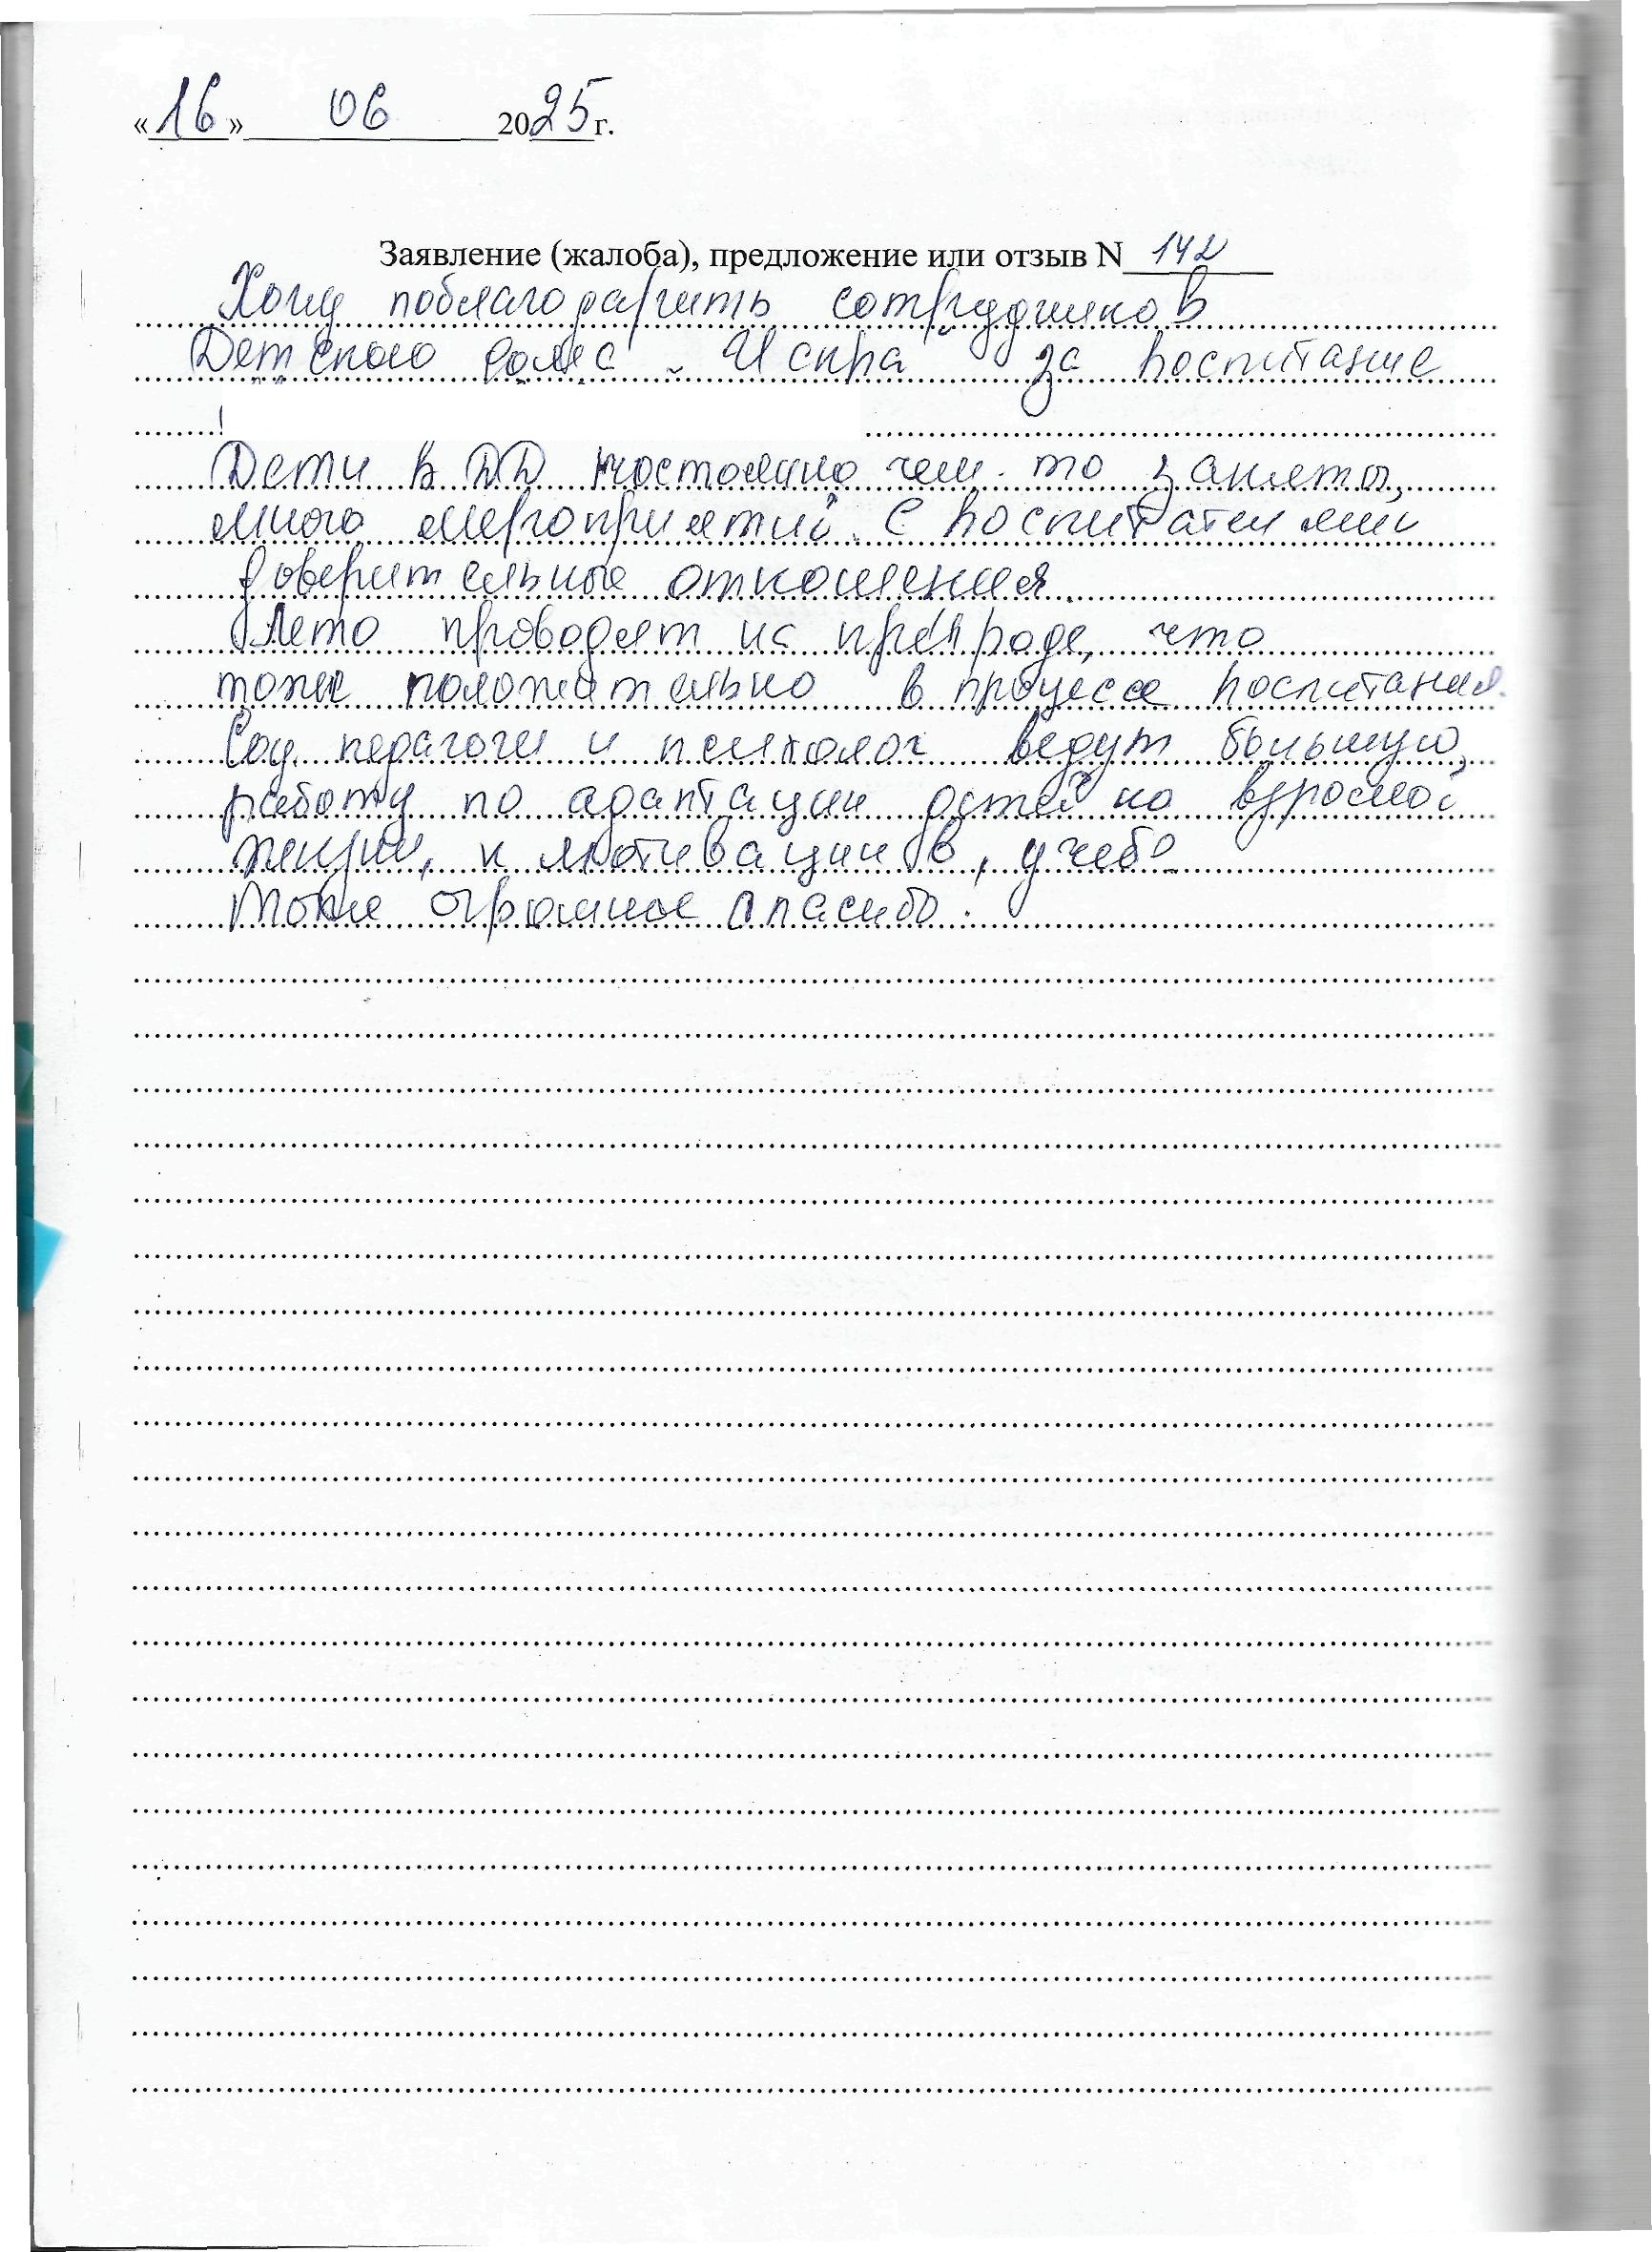 «16» 06 2025 г.
Заявление (жалоба), предложение или отзыв N 142
Хочу поблагодарить сотрудников
Детского дома „Искра" за воспитание
!
Дети в ДД постоянно чем-то заняты,
много мероприятий. С воспитателями
доверительные отношения.
Лето проводят на природе, что
тоже положительно в процессе воспитания.
Соц. педагоги и психолог ведут большую
работу по адаптации детей ко взрослой
жизни, к мотивации в учебе
Тоже огромное спасибо.